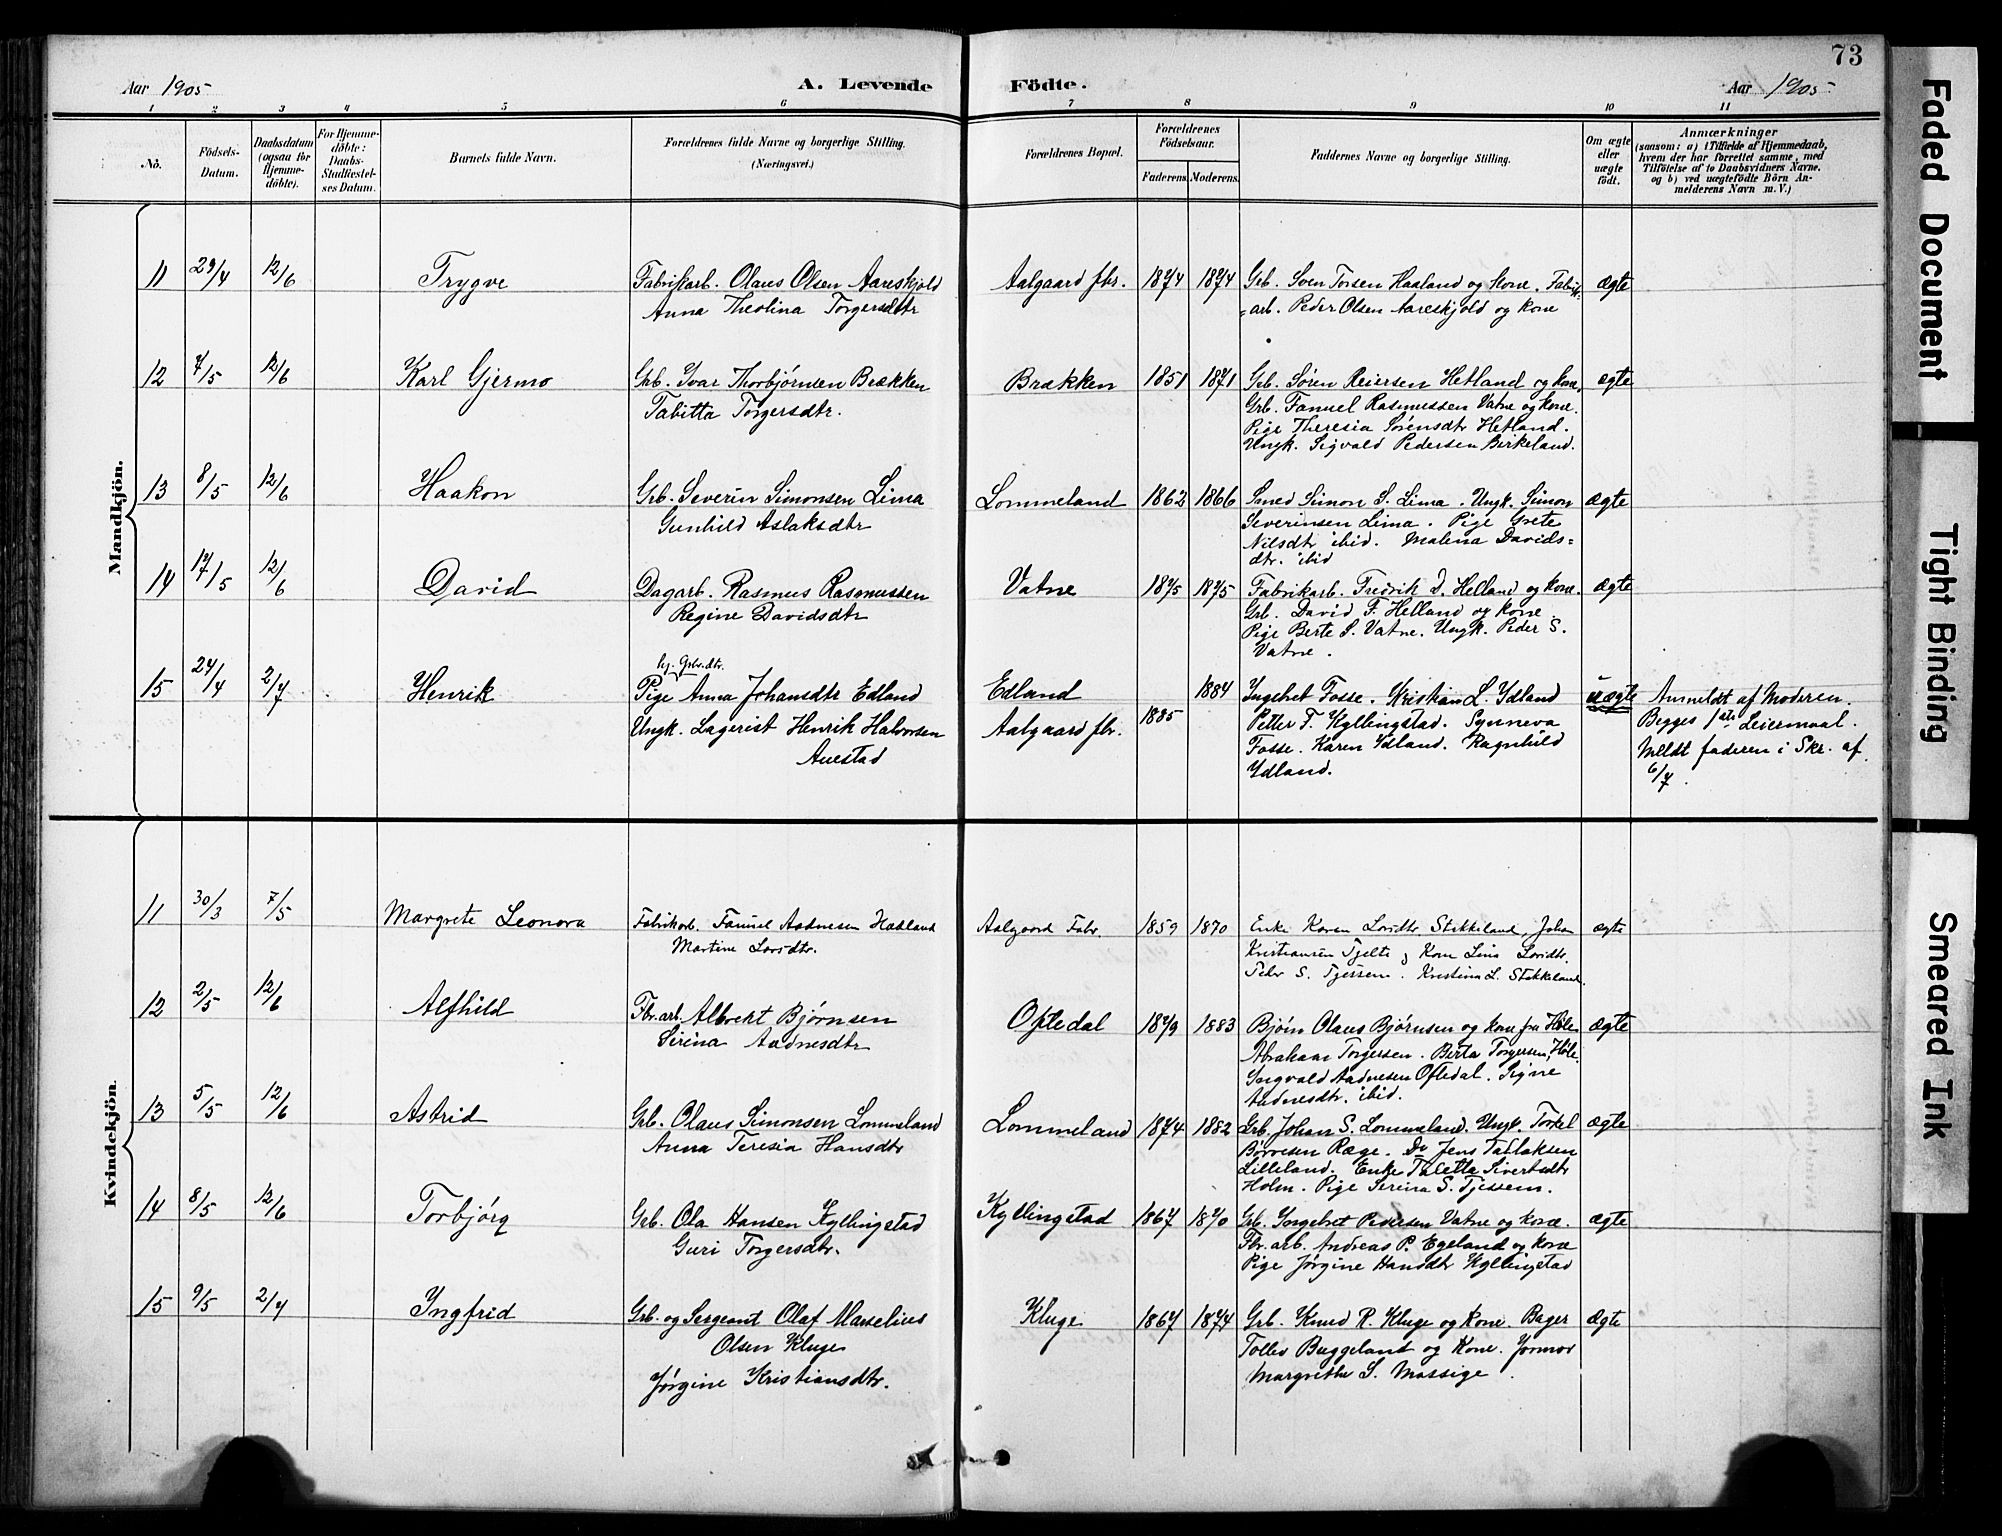 73
Aar 1905 A. Levende Födte. Aar 1905
1 2 3 4 5 6 7 8 9 10 11
No.
Födsels-
Datum.
Daabsdatum
(ogsaa for
Hjemme-
döbte).
For Hjemme-
döbte:
Daabs-
Stadfæstel-
ses Datum.
Barnets fulde Navn.
Forældrenes fulde Navne og borgerlige Stilling.
(Næringsvei.)
Forældrenes Bopæl.
Forældrenes
Födselsaar.
Faderens. Moderens.
Faddernes Navne og borgerlige Stilling.
Om ægte
eller
uægte
födt.
Anmærkninger
(saasom: a) i Tilfælde af Hjemmedaab,
hvem der har forrettet samme, med
Tilföielse af to Daabsvidners Navne.
og b) ved uægtefödte Börn An-
melderens Navn m. V.)
Mandkjön.
11 29/4 12/6 Trygve Fabrikarb. Olaus Olsen Aareskjold Aalgaard fbr. 1874 1874 Grb. Sven Torsen Haaland og kone. Fabrik- ægte
Anna Theolina Torgersdtr =arb. Peder Olsen Aareskjold og kone
12 7/5 12/6 Karl Gjermo Grb. Ivar Thorbjørnsen Brækken Brækken 1851 1871 Grb. Søren Reiersen Hetland og kone. ægte
Tabitta Torgersdtr. Grb. Fanuel Rasmussen Vatne og kone.
Pige Theresia Sørensdtr Hetland.
Ungk. Sigvald Pedersen Birkeland.
13 8/5 12/6 Haakon Grb. Severin Simonsen Lima Lommeland 1862 1866 Smed Simon S. Lima. Ungk. Simon ægte
Gunhild Aslaksdtr Severinsen Lima. Pige Grete
Nilsdtr ibid. Malena Davids=
dtr. ibid
14 17/5 12/6 David Dagarb. Rasmus Rasmussen Vatne 1875 1875 Fabrikarb. Fredrik D. Helland og kone. ægte
Regine Davidsdtr Grb. David F. Helland og kone.
Pige Berte S. Vatne. Ungk. Peder S.
Vatne.
hj. Grbr.dtr.
15 24/4 2/7 Henrik Pige Anna Johansdtr Edland Edland 1884 Ingebret Fosse. Kristian L. Ydland uægte Anmeldt af Moderen.
Ungk. Lagerist Henrik Halvorsen Aalgaard fbr. 1885 Petter T. Kyllingstad. Synneva Begges 1ste Leiermaal.
Auestad Fosse. Karen Ydland. Ragnhild Meldt faderen i Skr. af
Ydland. 6/7.
Kvindekjön.
11 30/3 7/5 Margrete Leonora Fabrikarb. Fanuel Aadnesen Hadland Aalgaard Fabr. 1859 1870 Enke Karen Lovidtr. Stokkeland, Johan ægte
Martine Lovsdtr. Kristiansen Tjelte og Kone Lina Lovidtr.
Peder S. Tjessem. Kristina L. Stokkeland.
12 2/5 12/6 Alfhild Fbr.arb. Albrekt Bjørnsen Oftedal 1879 1883 Bjørn Olaus Bjørnsen og kone fra Høle ægte
Sirina Aadnesdtr Abraham Torgersen. Berta Torgersen, Høle.
Ingvald Aadnesen Oftedal. Signe
Aadnesdtr. ibid.
13 5/5 12/6 Astrid Grb. Olaus Simonsen Lommeland Lommeland 1874 1882 Grb. Johan S. Lommeland. Ungk. Torkel ægte
Anna Teresia Hansdtr Børresen Ræge. Do Jens Tallaksen
Lilleland. Enke Taletta Sivertsdtr
Holm. Pige Serina S. Tjessem.
14 8/5 12/6 Torbjørg Grb. Ola Hansen Kyllingstad Kyllingstad 1867 1870 Grb. Ingebret Pedersen Vatne og kone. ægte
Guri Torgersdtr. Fbr.arb. Andreas P. Egeland og kone
Pige Jørgine Hansdtr Kyllingstad
15 9/5 2/7 Ingfrid Grb. og Sergeant Olaf Marselius Kluge 1867 1874 Grb. Knud R. Kluge og kone. Bager ægte
Olsen Kluge Tollev Buggeland og Kone. Jormor
Jørgine Kristiansdtr. Margrethe S. Massige.
Faded Document
Tight Binding
Smeared Ink